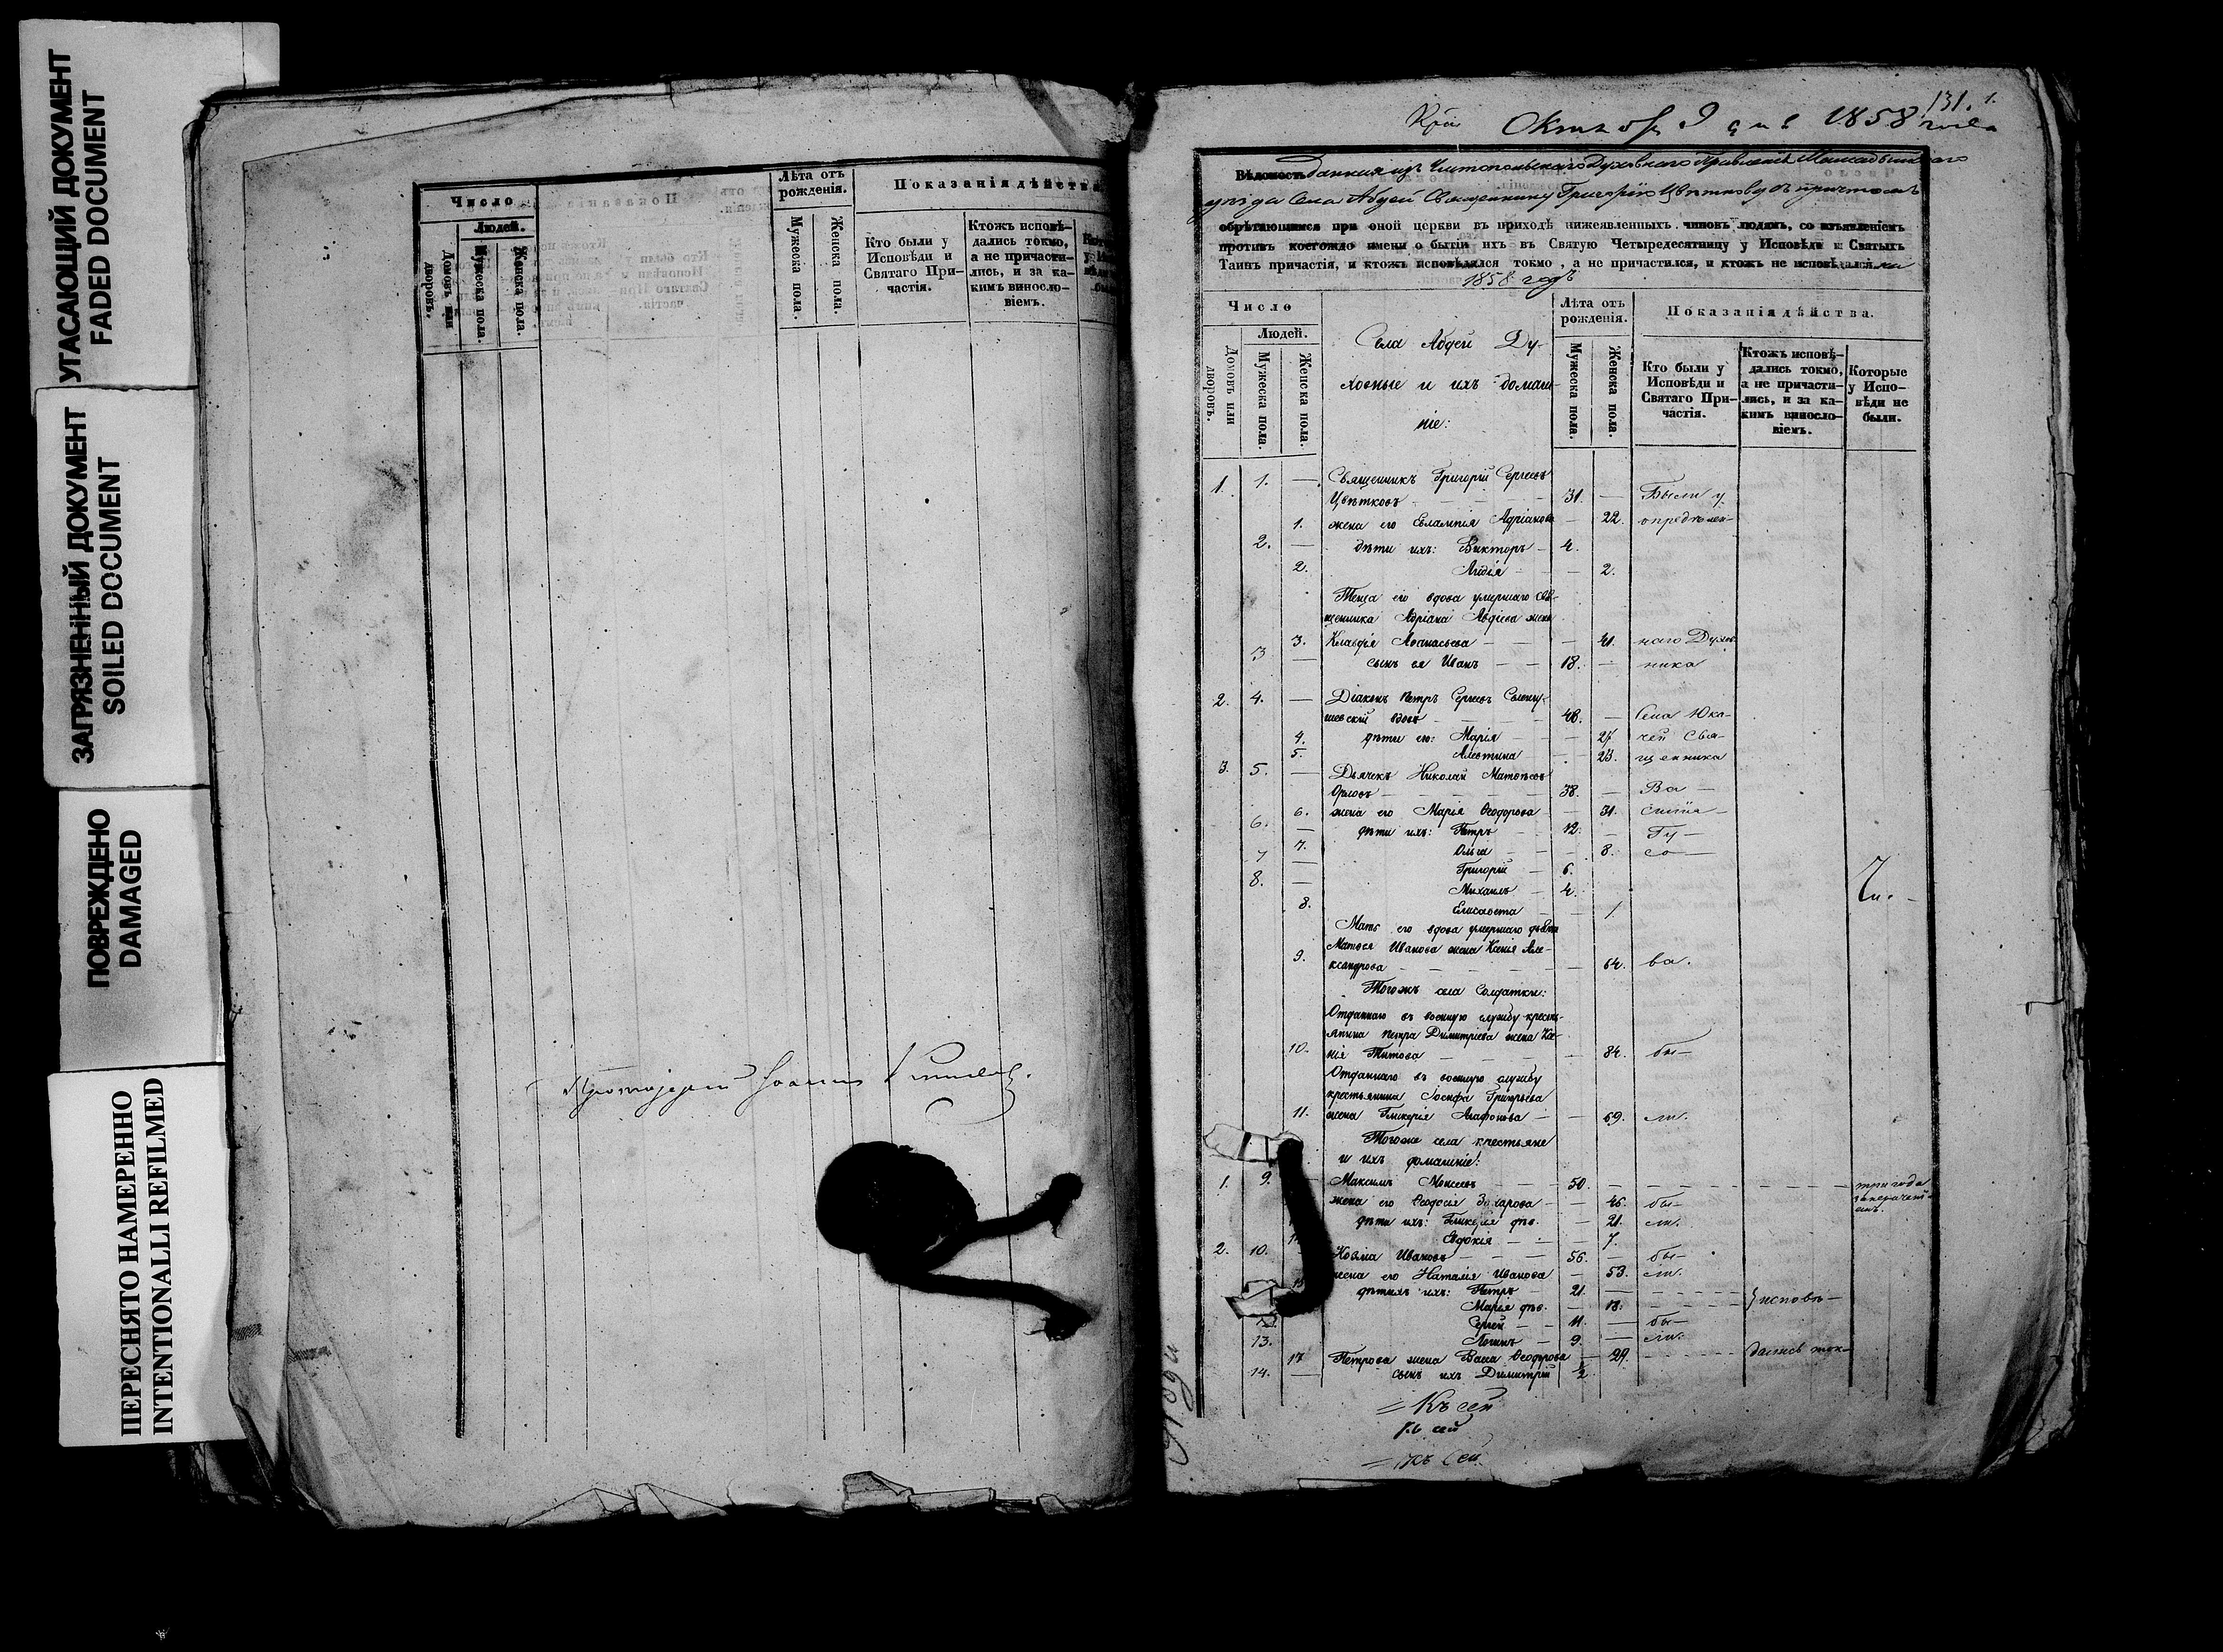 УГАСАЮЩИЙ ДОКУМЕНТ
FADED DOCUMENT
ЗАГРЯЗНЕННЫЙ ДОКУМЕНТ
SOILED DOCUMENT
ПОВРЕЖДЕНО
DAMAGED
ПЕРЕСНЯТО НАМЕРЕННО
INTENTIONALLI REFILMED
Число
Людей.
Домовъ или дворовъ.
Мужеска пола.
Женска пола.
Лѣта отъ
рожденія.
Мужеска пола.
Женска пола.
Показанія дѣйства
Кто были у
Исповѣди и
Святаго При-
частія.
Ктожъ исповѣ-
дались токмо,
а не причасти-
лись, и за ка-
кимъ винсло-
віемъ.
131. 1.
9 1858 года
Вѣдомость данная изъ Чистопольскаго Духовнаго Правленія
уѣзда Села Абдей Священнику Григорію Цвѣткову съ причтомъ
обрѣтающимся при оной церкви въ приходѣ нижеявленныхъ чиновъ людямъ, со изъявленіемъ
противъ коегождо имени о бытіи ихъ въ Святую Четыредесятницу у Исповѣди и Святыхъ
Таинъ причастія, и ктожъ исповѣдался токмо, а не причастился, и ктожъ не исповѣдался
1858 годъ
Число
Людей.
Домовъ или дворовъ.
Мужеска пола.
Женска пола.
Села Абдей Ду-
ховные и ихъ домаш-
ніе:
Лѣта отъ
рожденія.
Мужеска пола.
Женска пола.
Показанія дѣйства.
Кто были у
Исповѣди и
Святаго При-
частія.
Ктожъ исповѣ-
дались токмо,
а не причасти-
лись, и за ка-
кимъ винсло-
віемъ.
Которые
у Испо-
вѣди не
были.
1. 1. — Священникъ Григорій Сергѣевъ
Цвѣтковъ 31. — Были у
1. жена его Евлампія Адріанова — 22. опредѣлен-
2. — дѣти ихъ: Викторъ 4.
2. Лидія — 2.
Теща его вдова умершаго свя-
щенника Адріана Авдіева жена
3. Клавдія Аѳанасьева — 41. наго Духов-
3 — сынъ ея Иванъ 18. — ника
2. 4. — Діаконъ Петръ Сергѣевъ
вдовъ 48. — Села Юка-
4. дѣти его: Марія — 27 чей Свя-
5. Алевтина — 23. щенника
3. 5. — Дьячекъ Николай Матвѣевъ
Орловъ 38. — Ва—
6. жена его Марія Ѳеодорова — 31. силія—
6. — дѣти ихъ: Петръ 12. — Гу—
7. Ольга — 8. со—
7 — Григорій 6.
8. — Михаилъ 4.
8. Елисавета — 1
Мать его вдова умершаго дьячка
Матвѣя Иванова жена Ксенія Але-
9. ксандрова — 64. ва.
Тогожъ села Солдатки:
Отданнаго въ военную службу кресть-
янина Петра Димитріева жена Ксе-
10. нія Титова — 84. бы—
Отданнаго въ военную службу
крестьянина Іосифа Григорьева
11. жена Гликерія Агафонова — 69. ли.
Тогоже села крестьяне
и ихъ домашніе:
1. 9. Максимъ Моисеевъ 50. три года
жена его Ѳеодосія Захарова — 46. бы—
дѣти ихъ: Гликерія дѣв. — 21. ли.
Евдокія — 7.
2. 10. Козма Ивановъ 56. — бы—
жена его Наталія Иванова — 53. ли.
дѣти ихъ: Петръ 21. —
Марія дѣв. — 18. исповѣ—
Сергѣй 11. — бы—
13. Логинъ 9. — ли.
17 Петрова жена Васса Ѳеодорова — 29. дались ток—
14. — сынъ ихъ Димитрій ½
Къ сей
Къ сей
Къ сей